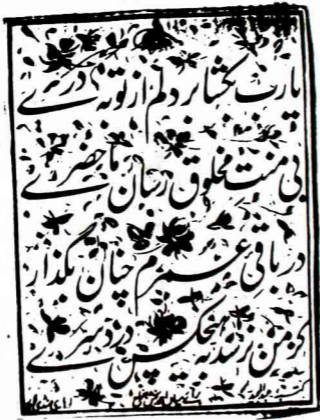 یارب بگشا بر دلم از توبه دری
بی منت مخلوق رسان ما حضری
در باقی عمرم چنان بگذار
کز من نرسد به هیچکس دردسری